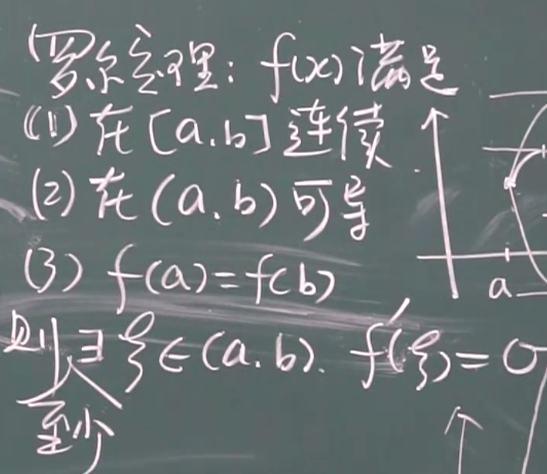 罗尔定理: f(x)满足
(1) 在[a.b]连续
(2) 在(a.b)可导
(3) f(a)=f(b)
a
则∃ξ∈(a.b). f'(ξ)=0
至少